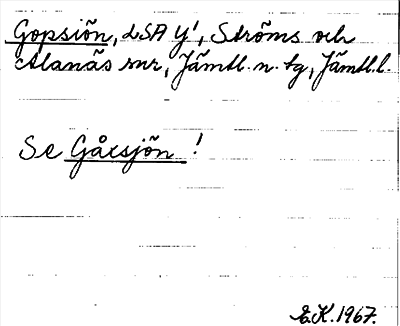 Gopsiön, LSA y!, Ströms och
Alanäs snr, Jämtl. n. tg, Jämtl. l.
Se Gåxsjön!
E.K. 1967.